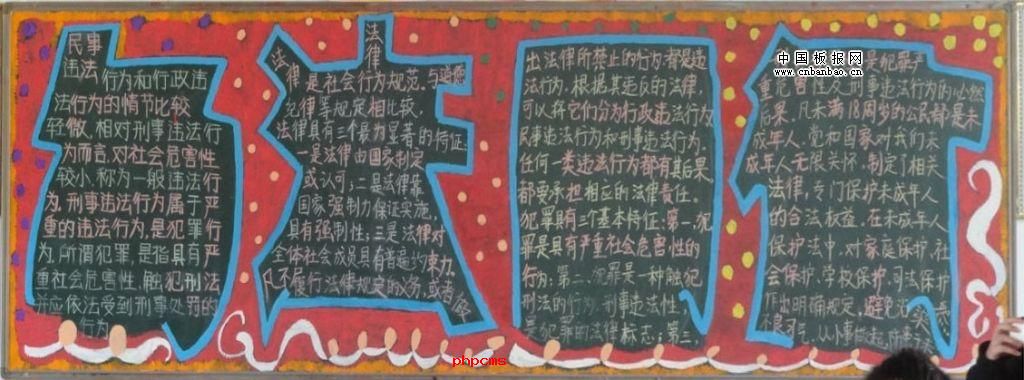 民事
违法行为和行政违
法行为的情节比较
轻微,相对刑事违法行
为而言,对社会危害性
较小,称为一般违法行
为,刑事违法行为属于严
重的违法行为,是犯罪行
为,所谓犯罪,是指具有严
重社会危害性,触犯刑法
并应依法受到刑事处罚的
行为
法律
法律是社会行为规范,与道德
纪律等规定相比较,
法律具有三个最为显著的特征
一是法律由国家制定
或认可,二是法律靠
国家强制力保证实施,
具有强制性;三是法律对
全体社会成员具有普遍约束力.
不履行法律规定的义务,或者做
出法律所禁止的行为都是违
法行为.根据其违反的法律,
可以将它们分为行政违法行为,
民事违法行为和刑事违法行为,
任何一类违法行为都有其后果
都要承担相应的法律责任.
犯罪具有三个基本特征.第一,犯
罪是具有严重社会危害性的
行为;第二,犯罪是一种触犯
刑法的行为,刑事违法性,
是犯罪的法律标志;第三,
中国板报网
www.cnbanbao.cn
是犯罪严
重危害性及刑事违法行为的必然
后果.凡未满18周岁的公民都是未
成年人.党和国家对我们未
成年人无限关怀,制定了相关
法律,专门保护未成年人
的合法权益.在未成年人
保护法中,对家庭保护、社
会保护、学校保护、司法保护
作出明确规定.避免
从小事做起,
phpcms